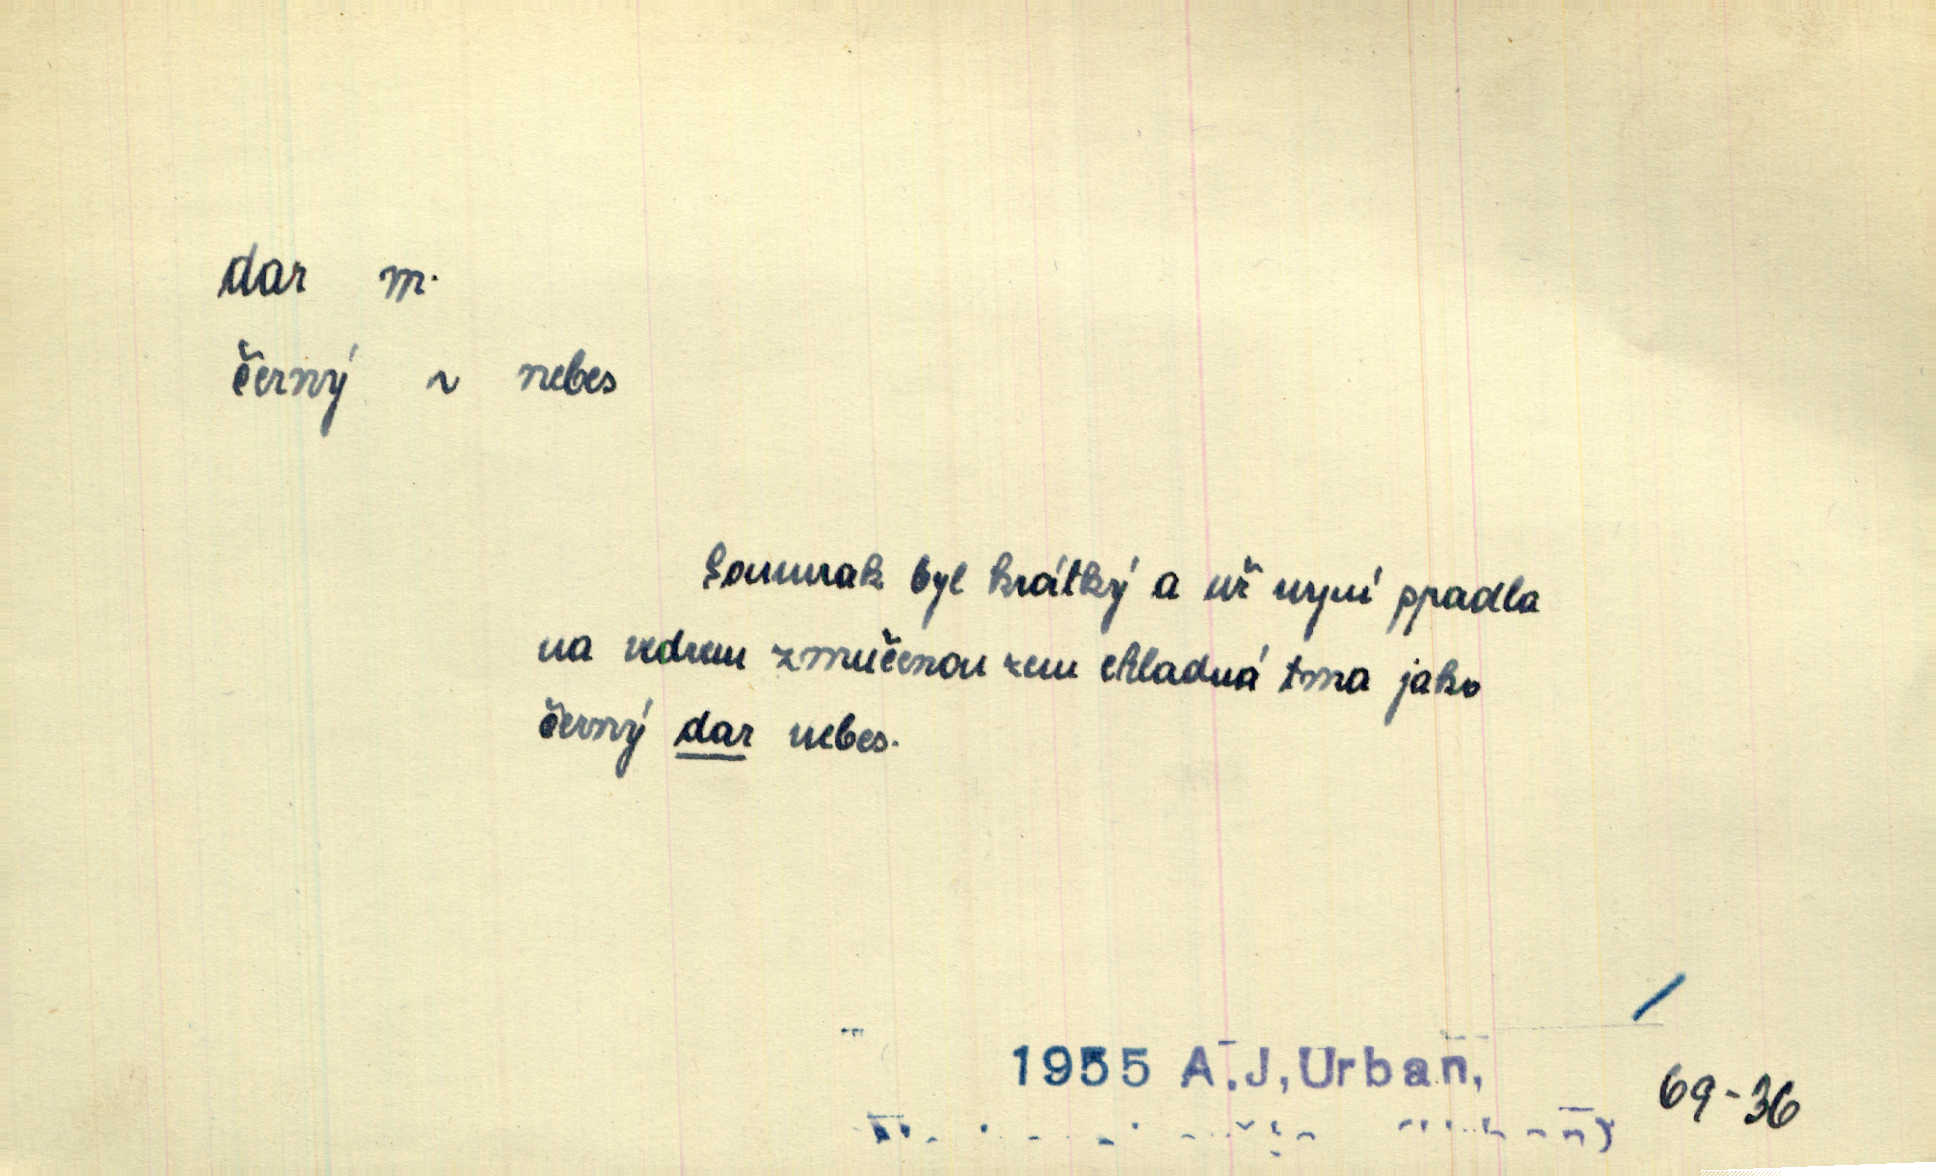 dar m.
černý ~ nebes
Soumrak byl krátký a už nyní spadla
na vedrem zmučenou zem chladná tma jako
černý dar nebes.
1955 A.J, Urban,
69-36